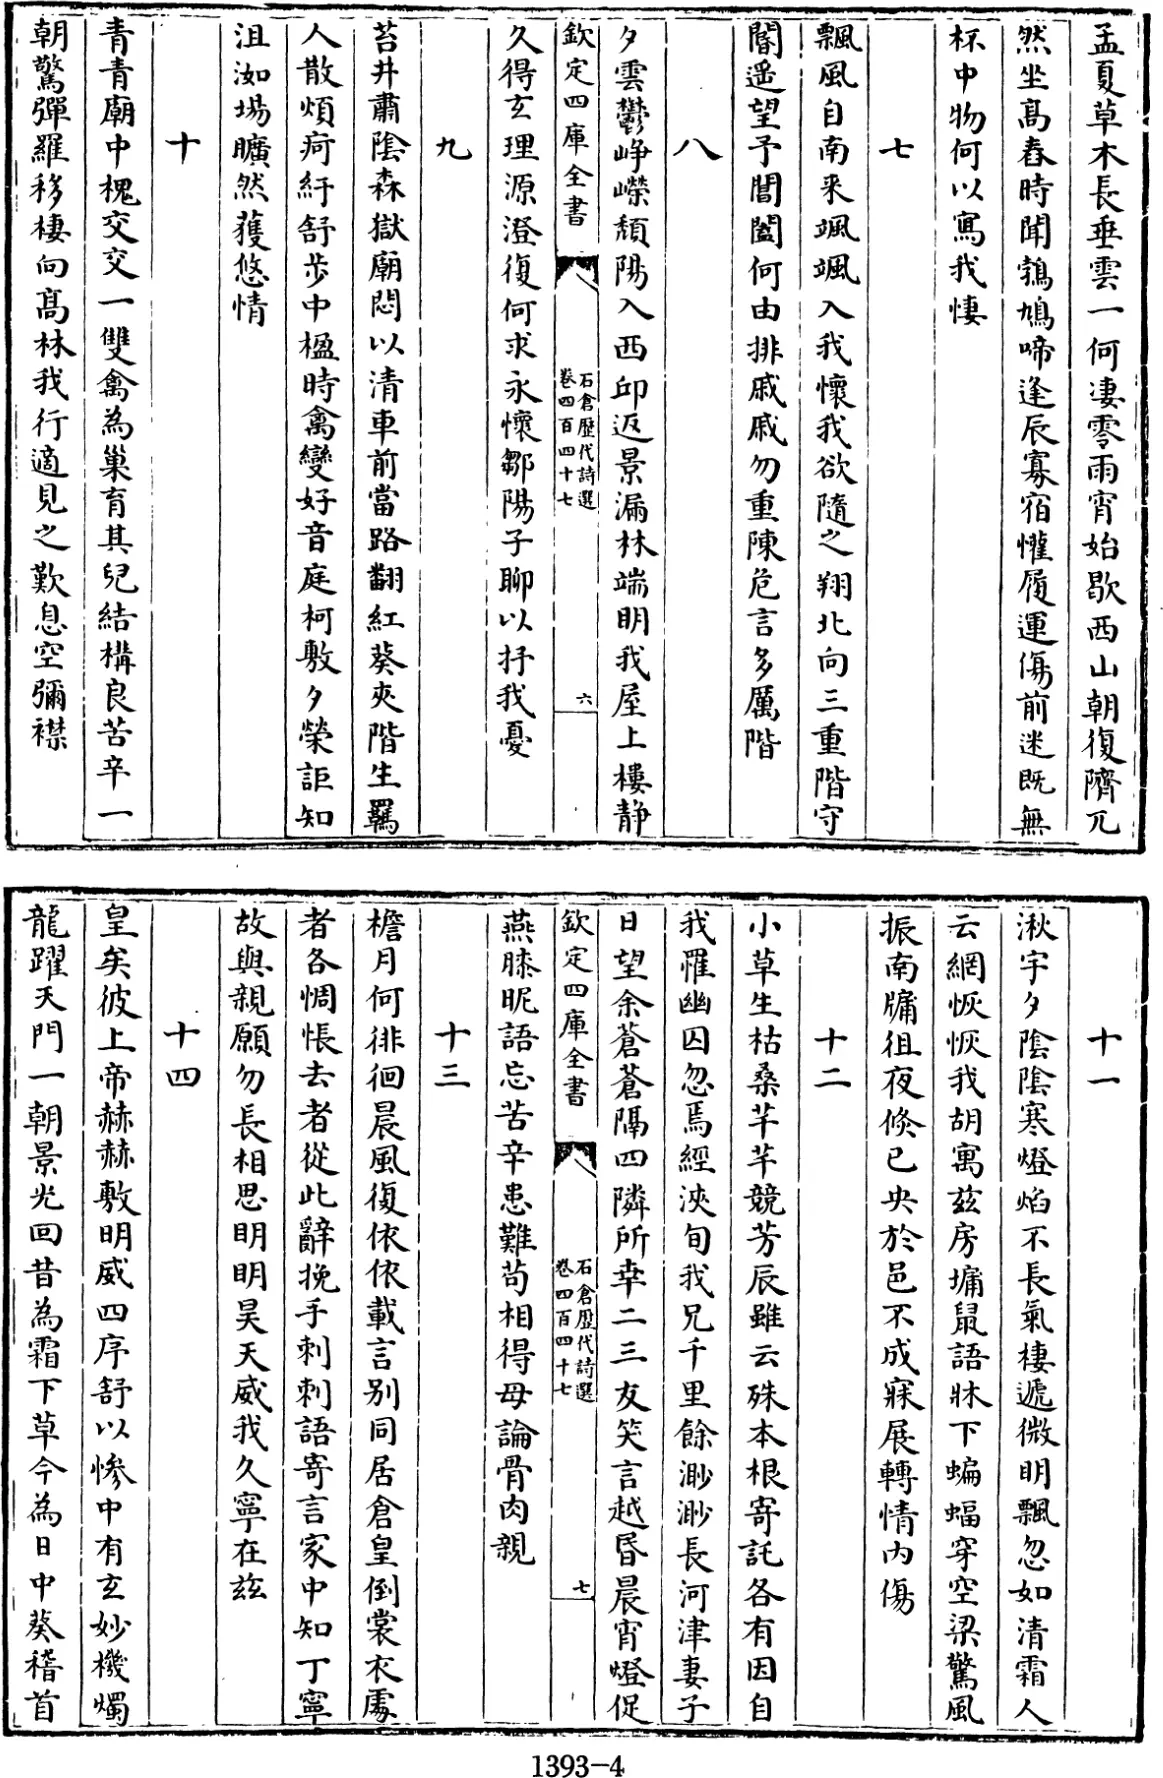 孟夏草木長垂雲一何淒零雨宵始歇西山朝復隮兀
然坐髙舂時聞鶬鳩啼逢辰寡宿懽履運傷前迷既無
杯中物何以寫我悽
七
飄風自南來颯颯入我懷我欲隨之翔北向三重階守
閽遥望予閶闔何由排戚戚勿重陳危言多厲階
八
夕雲鬱崢嶸頽陽入西卭返景漏林端明我屋上樓静
欽定四庫全書
石倉歷代詩選
卷四百四十七
六
久得玄理源澄復何求永懷鄒陽子聊以抒我憂
九
苔井肅陰森獄廟悶以清車前當路翻紅葵夾階生羈
人散煩疴紆舒步中楹時禽變好音庭柯敷夕榮詎知
沮洳場曠然獲悠情
十
青青廟中槐交交一雙禽為巢育其兒結構良苦辛一
朝驚彈羅移棲向髙林我行適見之歎息空彌襟
十一
湫宇夕陰陰寒燈焰不長氣棲遞微明飄忽如清霜人
云網恢恢我胡寓兹房墉鼠語牀下蝙蝠穿空梁驚風
振南牖徂夜倏已央於邑不成寐展轉情内傷
十二
小草生枯桑芊芊競芳辰雖云殊本根寄託各有因自
我罹幽囚忽焉經浹旬我兄千里餘渺渺長河津妻子
日望余蒼蒼隔四隣所幸二三友笑言越昏晨宵燈促
欽定四庫全書
石倉歷代詩選
卷四百四十七
七
燕膝昵語忘苦辛患難苟相得毋論骨肉親
十三
檐月何徘徊晨風復依依載言别同居倉皇倒裳衣處
者各惆悵去者從此辭挽手刺刺語寄言家中知丁寧
故與親願勿長相思明明昊天威我久寧在兹
十四
皇矣彼上帝赫赫敷明威四序舒以慘中有玄妙機燭
龍躍天門一朝景光回昔為霜下草今為日中葵稽首
1393-4